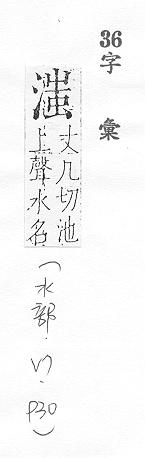 36字彙
滍
丈几切池
上聲水名
(水部. . P30)